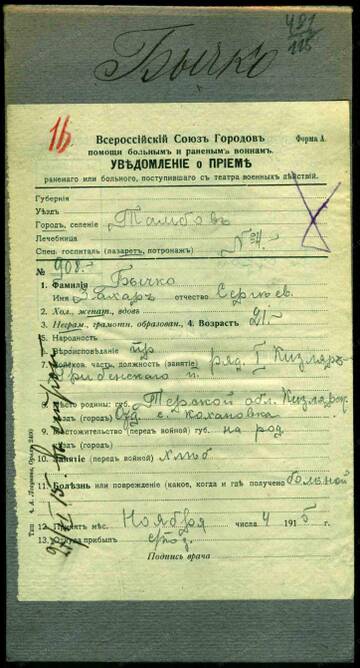 481
115
Бычко
16
Всероссійскій Союзъ Городовъ
Форма А.
помощи больнымъ и раненымъ воинамъ.
УВѢДОМЛЕНІЕ о ПРІЕМѢ
раненаго или больного, поступившаго съ театра военныхъ дѣйствій.
Губернія
Уѣздъ
Городъ, селеніе Тамбовъ
Лечебница
Спец. госпиталь (лазаретъ, патронажъ)
№ 908.
1. Фамилія Бычко
Имя Захаръ отчество Сергѣев.
2. Хол., женат., вдовъ
3. Неграм., грамотн. образован., 4. Возрастъ 21.
5. Народность
6. Вѣроисповѣданіе пр
7. Войсков. часть, должность (занятіе) ряд. I Кизляро-
Гребенскаго п.
8. Мѣсто родины: губ. Терской обл. Кизляр.
уѣздъ (городъ) Отд. с. Кохановка
9. Мѣстожительство (передъ войной) губ. на род.
уѣздъ (городъ)
10. Занятіе (передъ войной) хлѣб
11. Болѣзнь или поврежденіе (какое, когда и гдѣ получено больной
12. Принятъ мѣс. Ноября числа 4 1915 г.
13. Откуда прибылъ
Подпись врача